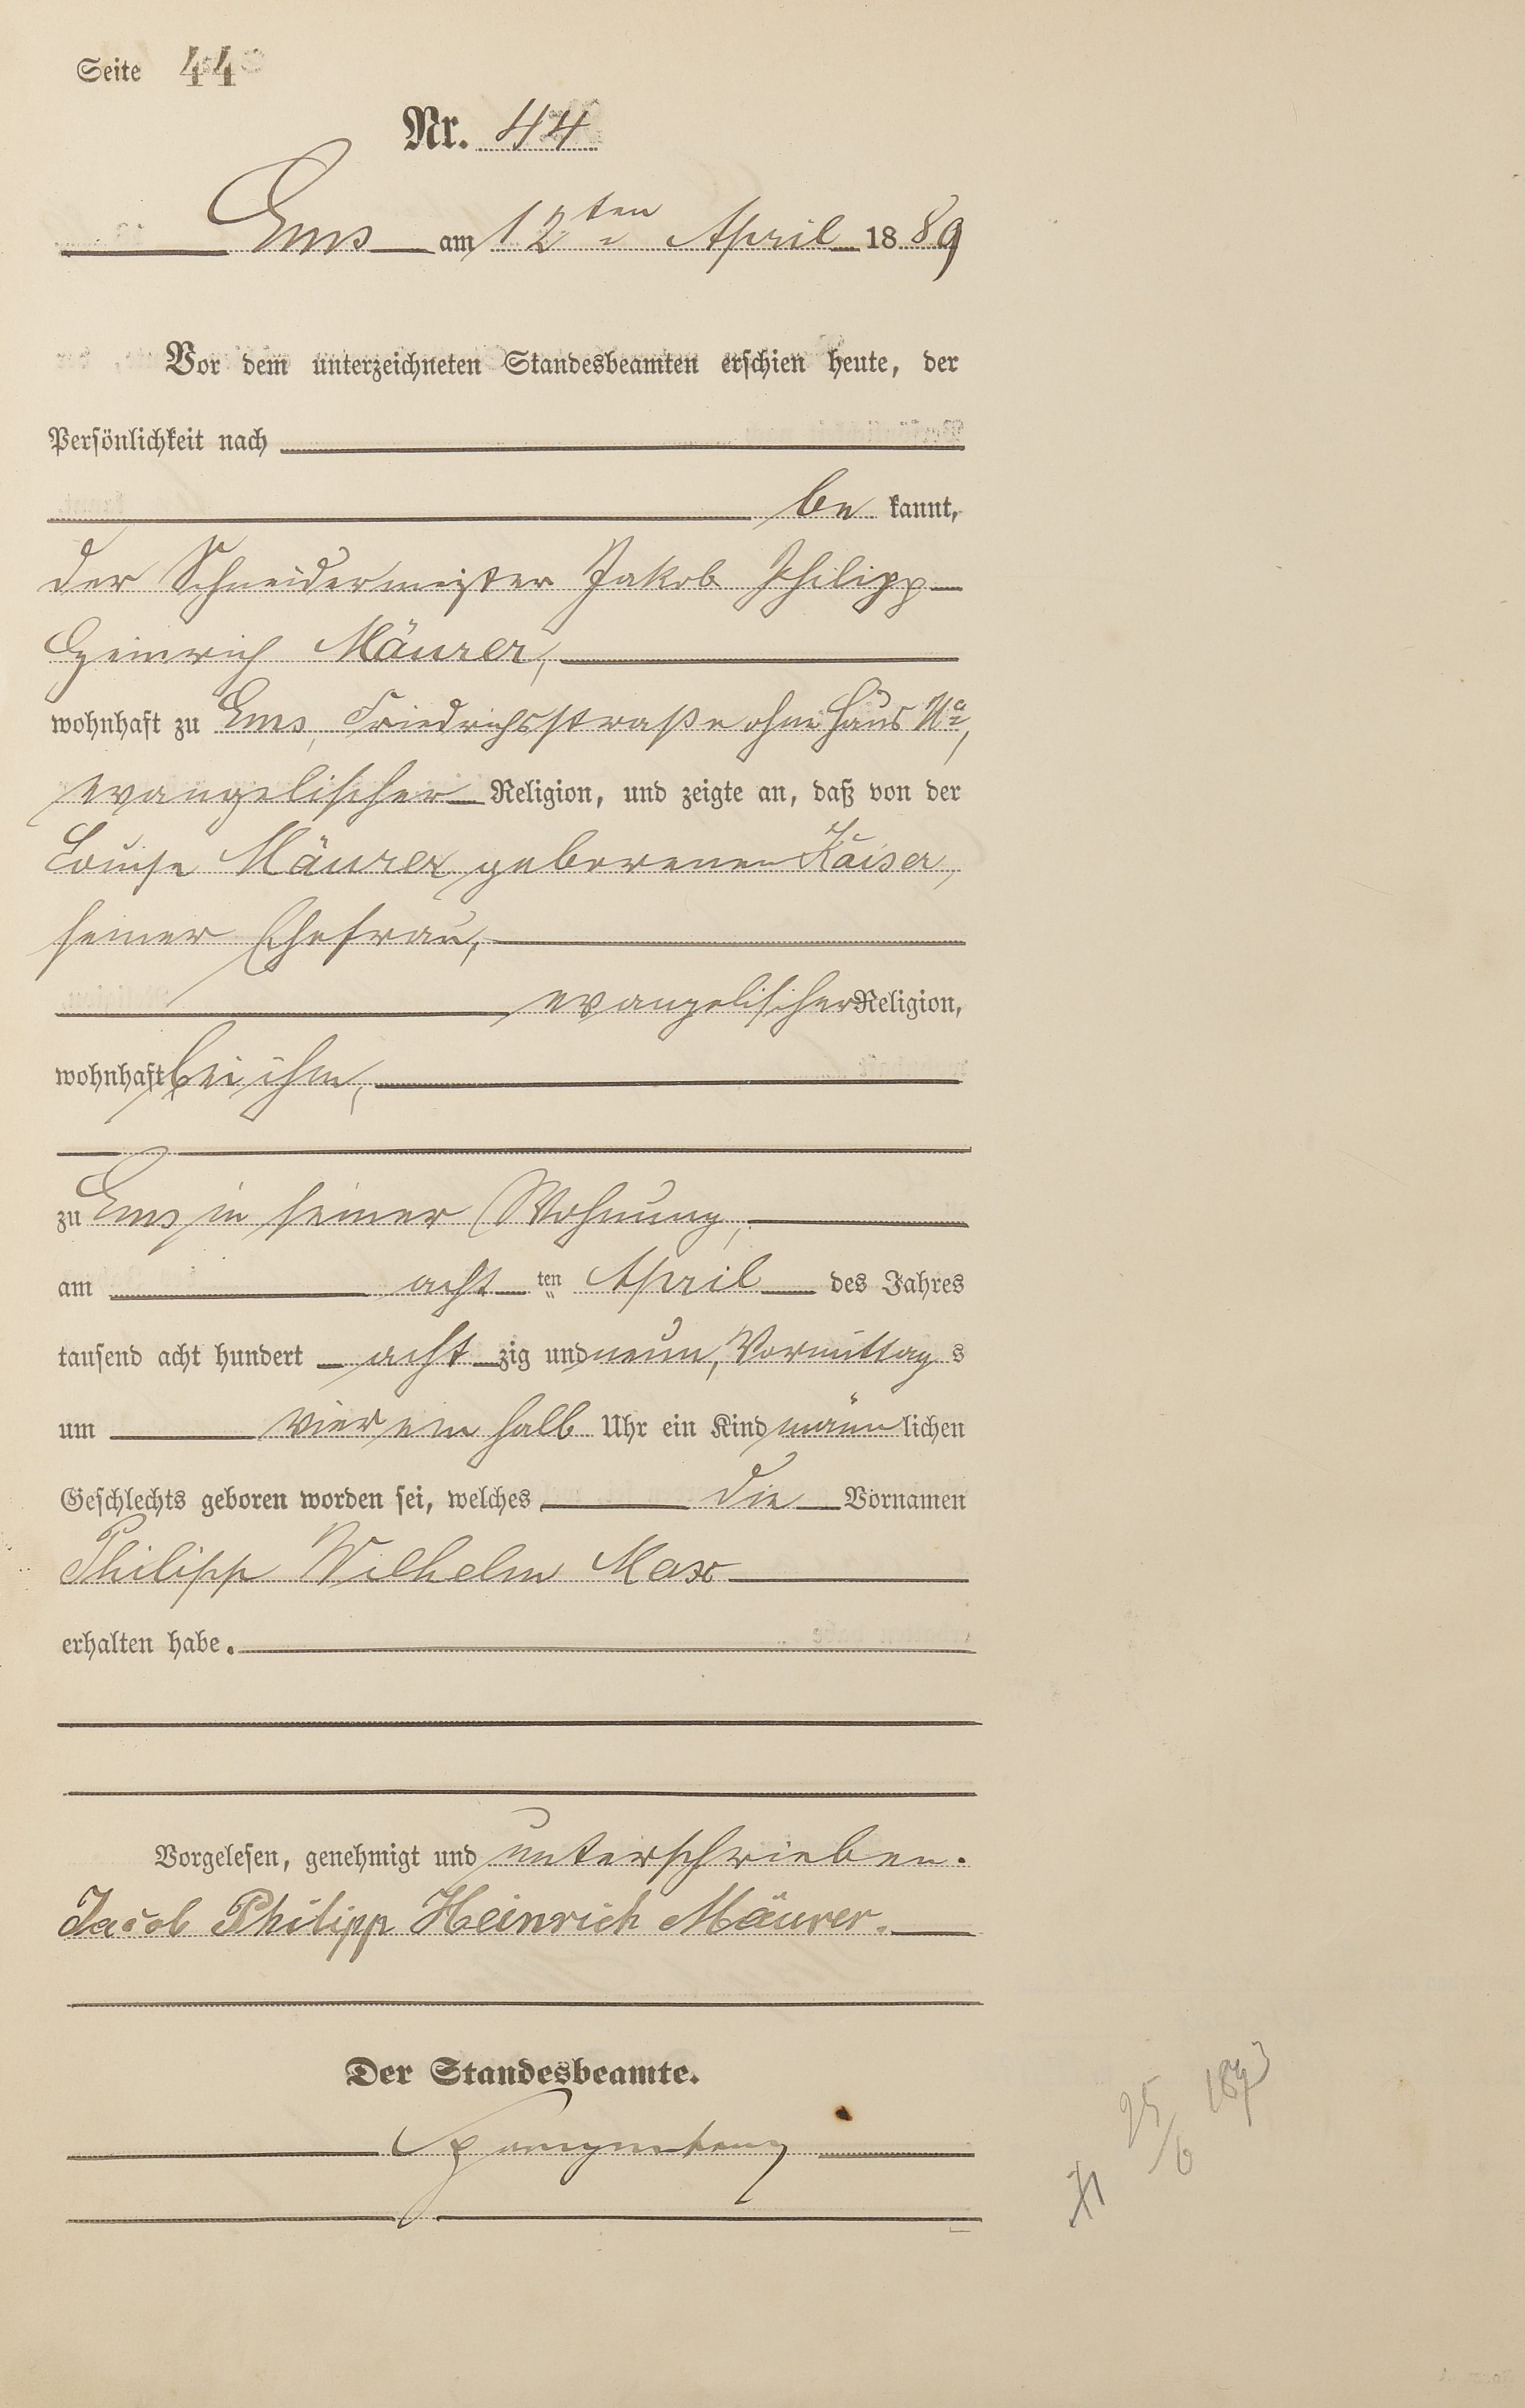 Seite 44
Nr. 44
Ems am 12ten April 1889
Vor dem unterzeichneten Standesbeamten erschien heute, der
Persönlichkeit nach
be kannt,
der Schneidermeister Jakob Philipp
Heinrich Mäurer,
wohnhaft zu Ems, Friedrichsstraße ohne Haus No,
evangelischer Religion, und zeigte an, daß von der
Louise Mäurer geborenen Kaiser,
seiner Ehefrau,
evangelischer Religion,
wohnhaft bei ihm,
zu Ems in seiner Wohnung,
am acht ten April des Jahres
tausend acht hundert acht zig und neun, Vormittag s
um vier ein halb Uhr ein Kind männ lichen
Geschlechts geboren worden sei, welches die Vornamen
Philipp Wilhelm Max
erhalten habe.
Vorgelesen, genehmigt und unterschrieben.
Jacob Philipp Heinrich Mäurer.
Der Standesbeamte.